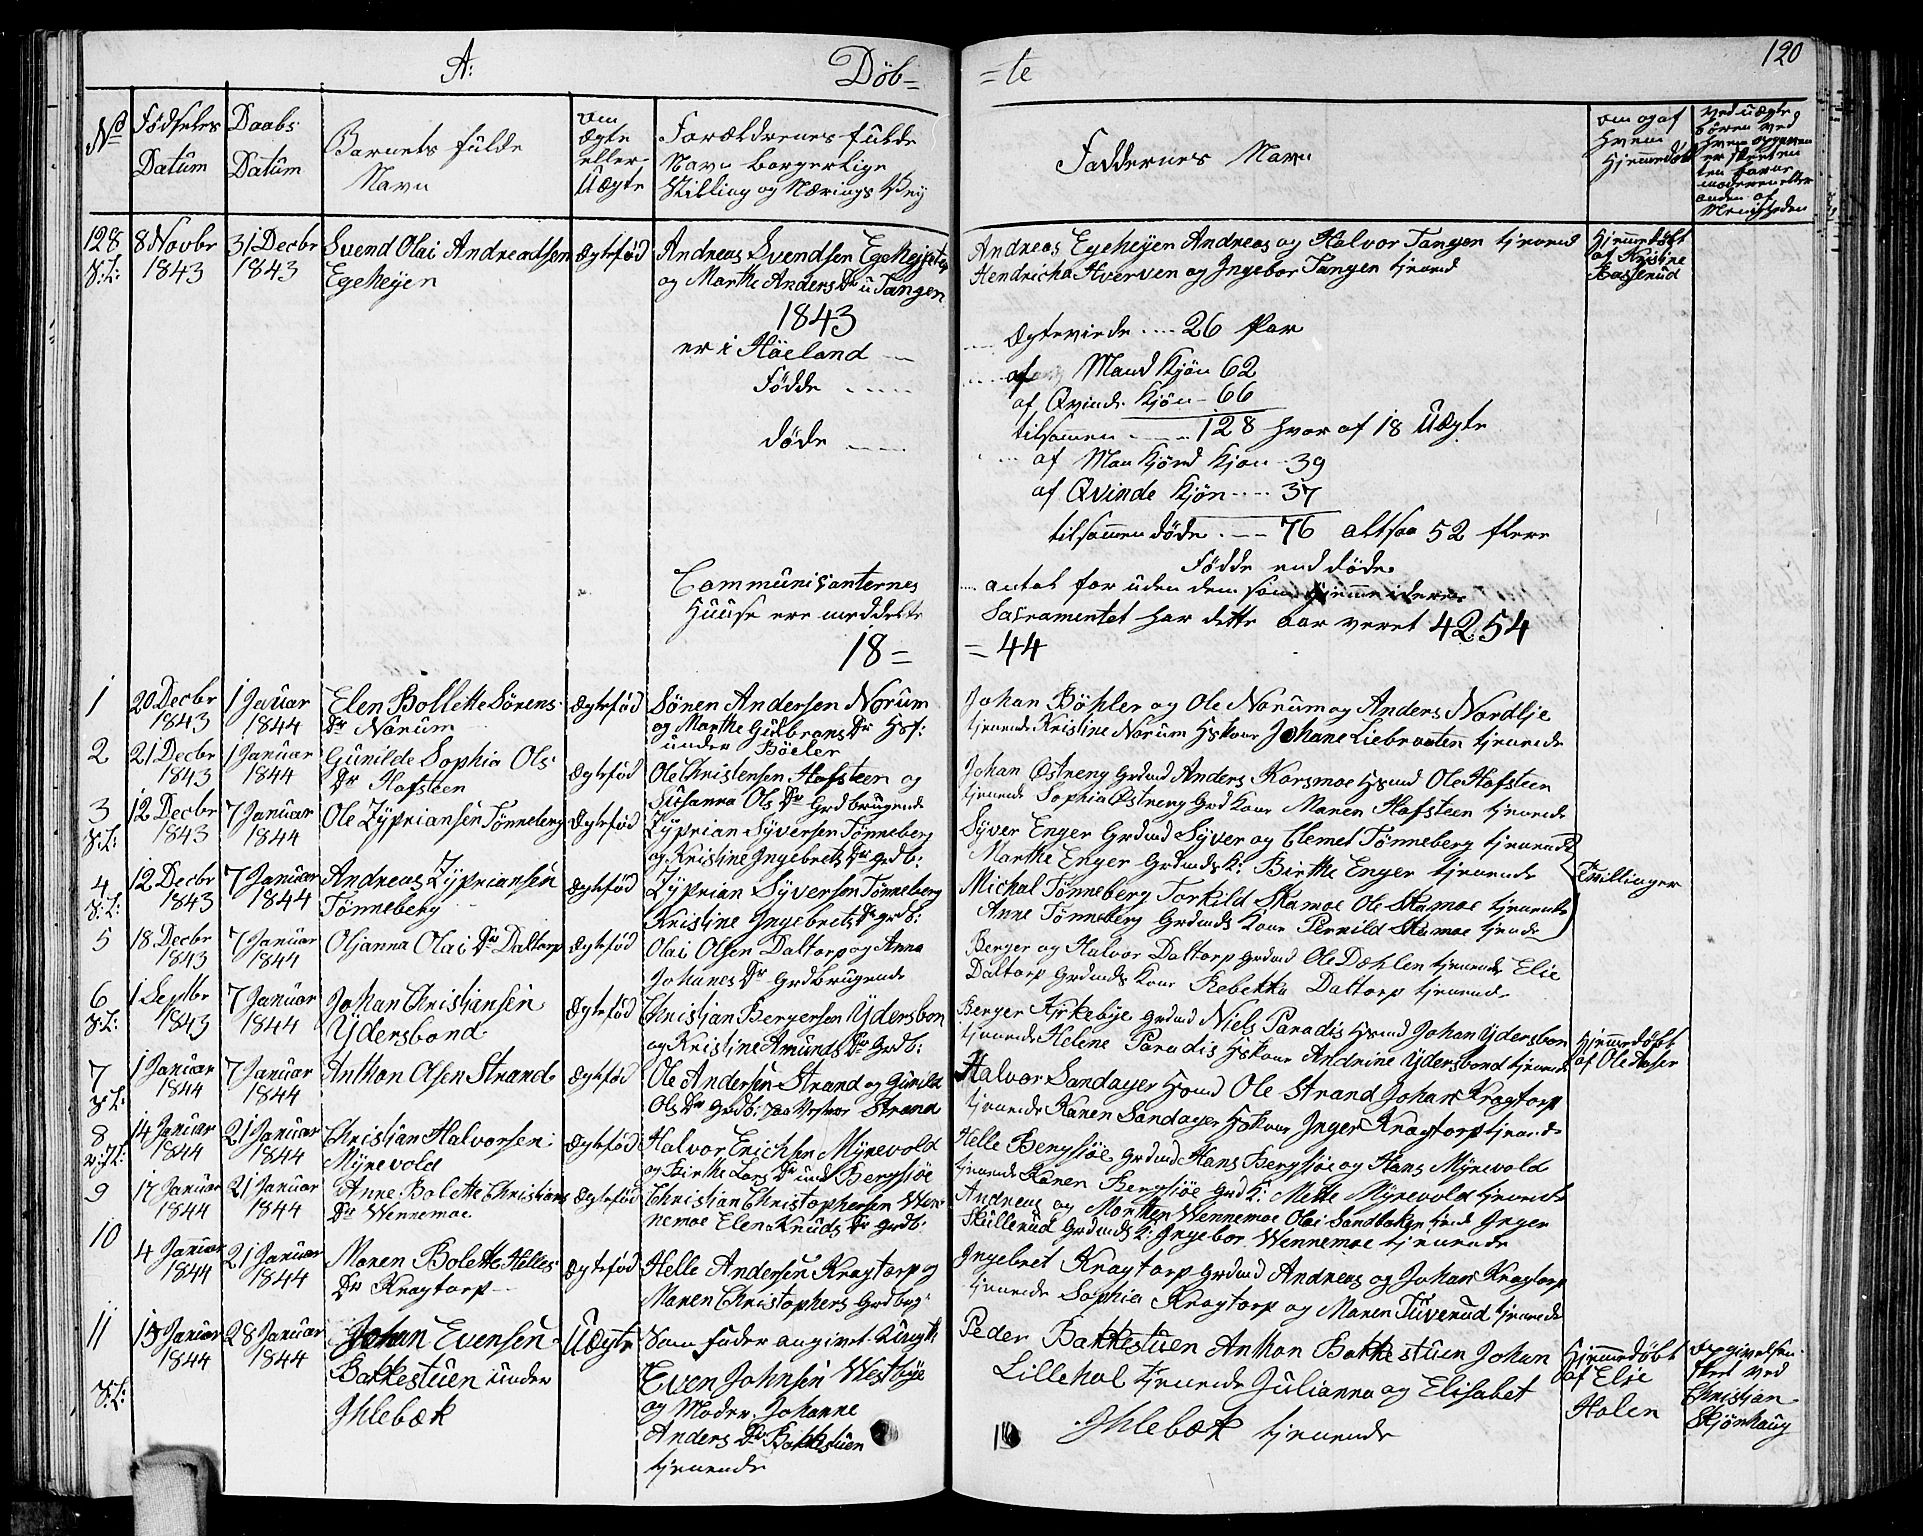 A:
Döb=
=te
120
No
Födseles
Datum
Daabs
Datum
Barnets fulde
Navn
om
Ægte
eller
Uægte
Forældrenes fulde
Navn borgerlige
Stilling og Nærings Vej
Faddernes Navn
om og af
hvem
Hjemmedöbt
128
8 Novbr
1843
31 Decbr
1843
Svend Olai Andreadsen
Egehejen
Ægtefød
Andreas Svendsen
og Marthe Anders Dr u Tangen
Andreas Egehejen Andreas og Halvor Tangen tjenend
Hendricha Hverven og Ingebor Tangen tjenend
Hjemmedöbt
af Kristine
1843
er i Höeland
Födde
döde
Ægteviede .... 26 Par
af Mand Kjön 62
af Qvinde Kjön 66
tilsamen 128 hvor af 18 Uægte
af Kjön 39
af Qvinde Kjön .... 37
tilsamen döde .--- 76 altsaa 52 flere
Födde end döde
Communicanternes
Huuse ere meddelte
antal for uden dem som hjemme i deres
Sacramentet har dette aar veret 4254
18=
=44
1
20 Decbr
1843
1 Januar
1844
Elen Bollette Sörens
Dr Norum
Ægtefød
Sönen Andersen Norum
og Marthe Gulbrans Dr Hsf:
under Böeler
Johan Böhler og Ole Norum og Anders Nordlje
tjenende Kristine Norum Hskone Johane Liebraaten tjenende
2
21 Decbr
1843
1 Januar
1844
Gunilde Sophia Ols
Dr Hofsteen
Ægtefød
Ole Christensen Hofsteen og
Susanna Ols Dr Grdbrugende
Johan Østreng Grdmd Anders Korsmoe Hsmd Ole Hofsteen
tjenende Sophia Østreng Grdkone Maren Hofsteen tjenende
3
12 Decbr
1843
7 Januar
1844
Ole Zypriansen Tönneberg
Ægtefød
Zyprian Syversen Tönneberg
og Kristine Ingebrets Dr Grdb:
Syver Enger Grdmd Syver og Clemet Tönneberg tjenende
Marthe Enger Grdmds K: Birthe Enger tjenende
Tvillinger
4
12 Decbr
1843
7 Januar
1844
Andreas Zypriansen
Tönneberg
Ægtefød
Zyprian Syversen Tönneberg
Kristine Ingebrets Dr Grdb:
Michal Tönneberg Torkild Skamoe Ole Skamoe tjenende
Anne Tönneberg Grdmds Kone Pernild Skamoe tjende
5
18 Decbr
1843
7 Januar
1844
Oljanna Olai Dr Daltorp
Ægtefød
Olai Olsen Daltorp og Anna
Johanes Dr Grdbrugende
Berger og Halvor Daltorp Grdmd Ole Dæhlen tjenende Elie
Daltorp Grdmds Kone Rebekka Daltorp tjenende
6
1 Septbr
1843
7 Januar
1844
Johan Christiansen
Ydersbond
Ægtefød
Christian Bergersen Ydersbon
og Kristine Amunds Dr Grdb:
Berger Kirkebye Grdmd Niels Paradis Hsmd Johan Ydersbon
tjenende Helene Paradis Hskone Andrine Ydersbond tjenende
Hjemmedöbt
7
1 Januar
1844
7 Januar
1844
Anthon Olsen Strand
Ægtefød
Ole Andersen Strand og Gunild
Ols Dr Grdb: Strand
Halvor Sandager Hsmd Ole Strand Johan Kragtorp
tjenende Karen Sandager Hskone Inger Kragtorp tjenende
8
14 Januar
1844
21 Januar
1844
Christian Halvorsen
Myrevold
Ægtefød
Halvor Erichsen Myrevold
og Birthe Lars Dr und Bergsjöe
Helle Bergsjöe Grdmd Hans Bergsjöe og Hans Myrevold
tjenende Karen Bergsjöe Grd K: Mette Myrevold tjenende
9
17 Januar
1844
21 Januar
1844
Anne Bolette Christians
Dr Wennemoe
Ægtefød
Christian Christophersen Wen-
nemoe Elen Knuds Dr Grdb:
Andreas og Morthen Wennemoe Olai Sandbaken tjend Inger
Skullerud Grdmds K: Ingebor Wennemoe tjenende
10
4 Januar
1844
21 Januar
1844
Maren Bolette Helles
Dr Kragtorp
Ægtefød
Helle Andersen Kragtorp og
Maren Christophers Grdbrug:
Ingebret Kragtorp Grdmd Andreas og Johan Kragtorp
tjenende Sophia Kragtorp og Maren Tuverud tjenende
11
15 Januar
1844
28 Januar
1844
Johan Evensen
Bakkestuen under
Ihlebæk
Uægte
Som fader angivet Ungk:
Even Johnsen Westbye
og Moder Johanne
Anders Dr Bakkestuen
tjenende
Peder Bakkestuen Anthon Bakkestuen Johan
Lillehol tjenende Julianna og Elisabet
Ihlebæk tjenende
Hjemmedöbt
af Elie
Holen
opgivelsen
skeet ved
Christian
Skjönhaug